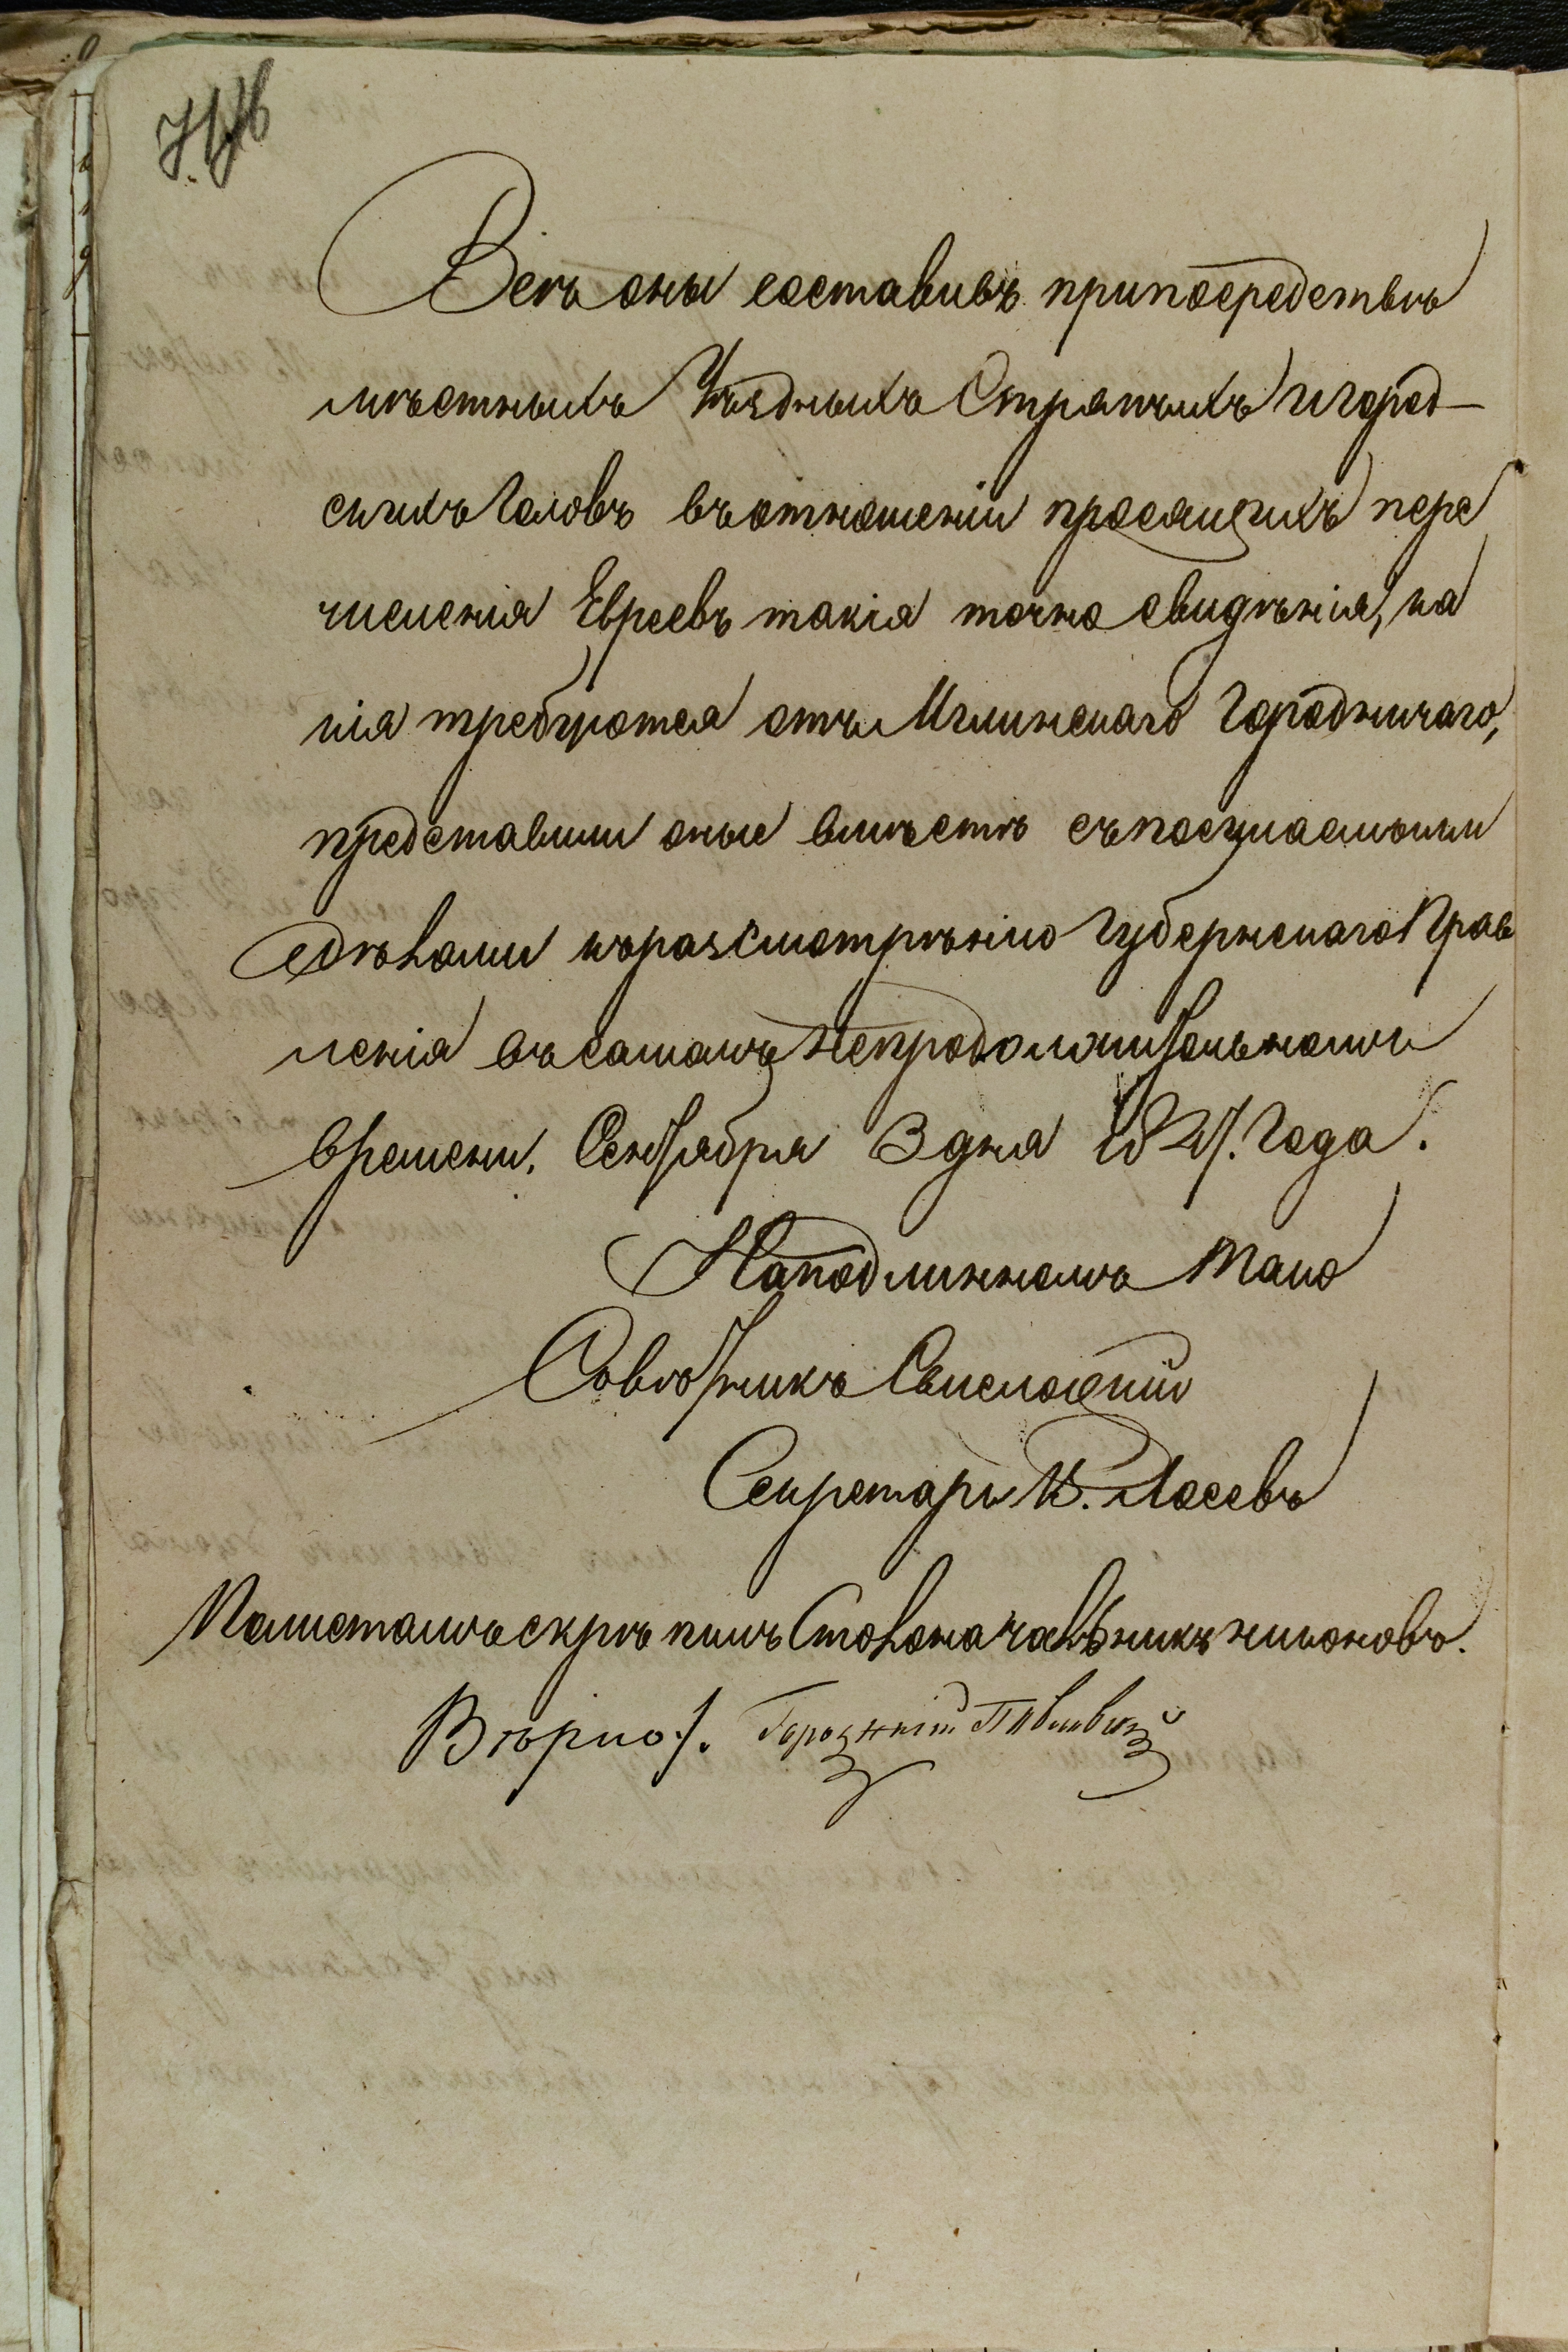 Всѣ оны составивъ припосредствѣ
мѣстныхъ Уѣздныхъ Стряпчихъ и Город-
скихъ Головъ въ отношеніи просящихъ пере
численія Евреевъ такія точно свидѣнія, ка
кія требуются отъ Мглинскаго Городничаго,
представили оные вмѣстѣ съ посемейными
къ разсмотрѣнію Губернскаго Прав
ленія въ самомъ непродолжительномъ
времени. Сентября 3 дня 1827. Года.
На подлинномъ тако
Совѣтникъ
Секретарь К. Лосевъ
По листамъ скрѣпилъ Столоначальникъ
Вѣрно:/. Городничій